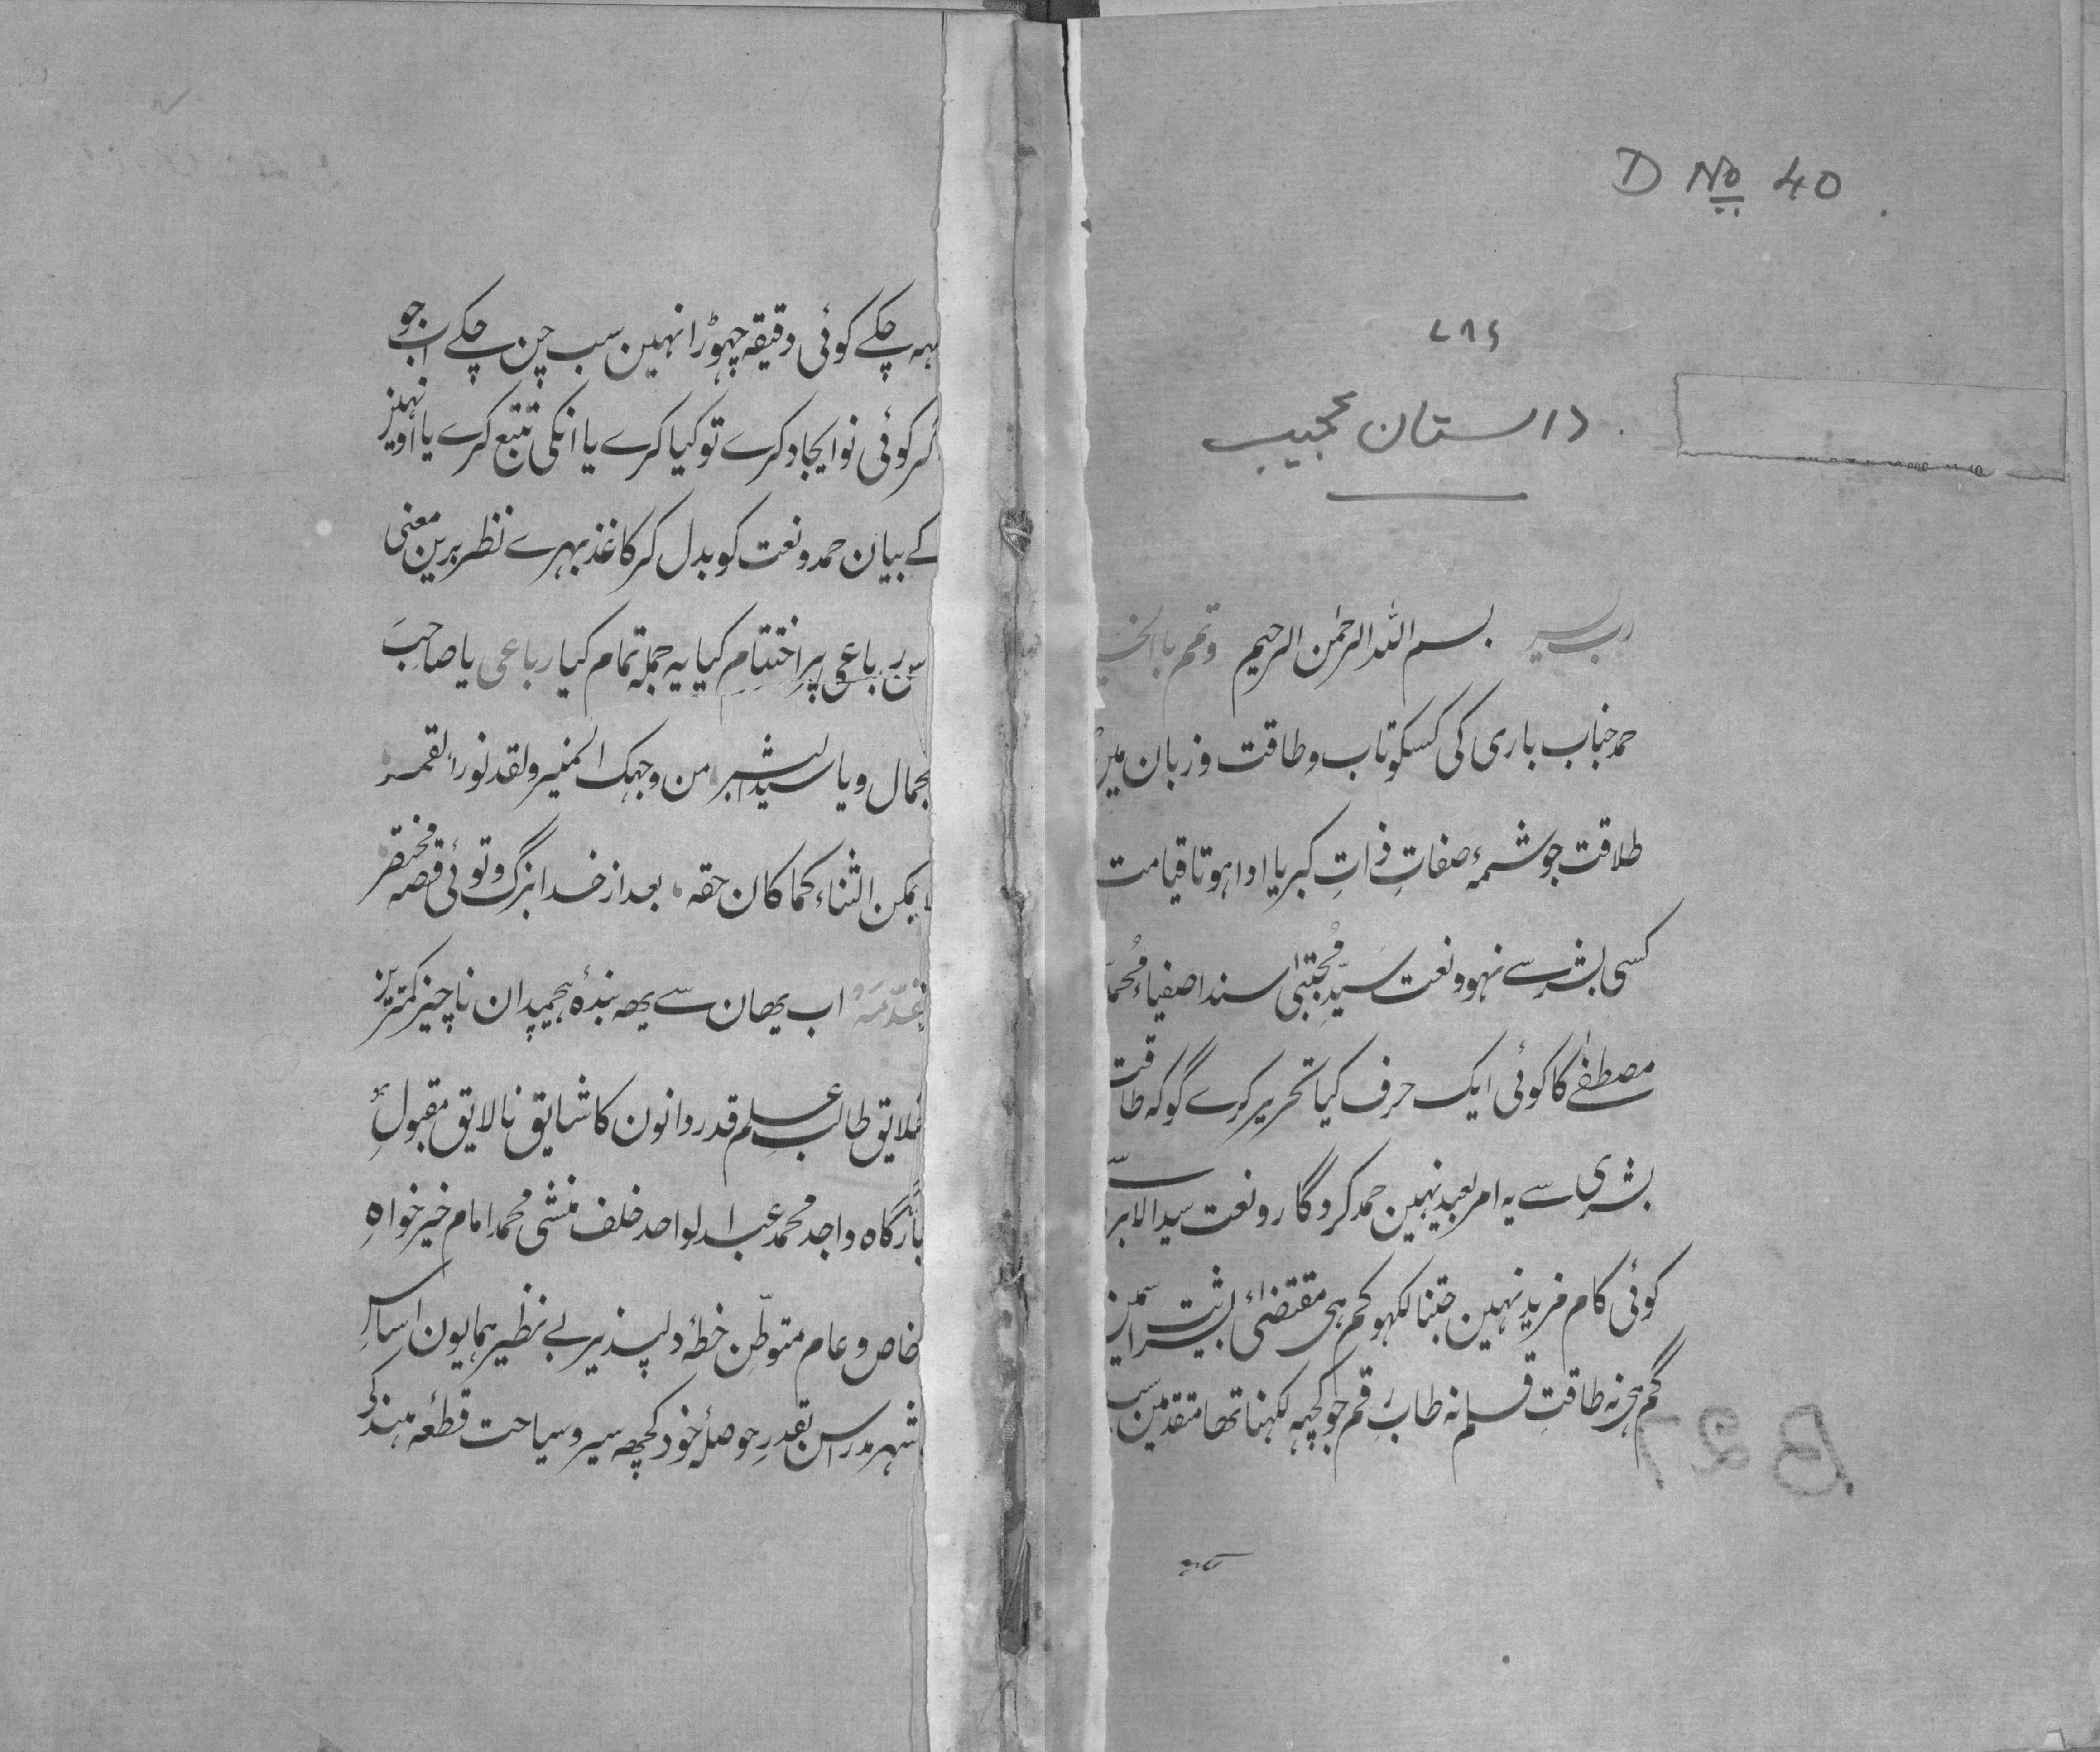 D No 40
۷۸۶
داستان عجیب
رب یسر بسم اللہ الرحمٰن الرحیم وتمم بالخیر
حمد جناب باری کی کسکو تاب و طاقت و زبان مین
طلاقت جو شمۂ صفاتِ ذاتِ کبریا ادا ہو تا قیامت
کسی بشر سے نہو و نعت سیّدِ مُجتبٰی سند اصفیاء مُحمد
مصطفےٰ کا کوئی ایک حرف کیا تحریر کرے گو کہ طاقت
بشری سے یہ امر بعید نہین حمد کردگار و نعت سید الابر
کوئی کام مزید نہین جتنا لکہو کم ہی مقتضائ بشریت اسمین
گم ہی نہ طاقتِ قلم نہ طاب رقم جو کچہہ لکہنا تھا متقدمین سب
کہہ چکے کوئی دقیقہ چہوڑا نہین سب چن چکے اب جو
گر کوئی نو ایجاد کرے تو کیا کرے یا انکی تتبع کرے یا اونہین
کے بیان حمد و نعت کو بدل کر کاغذ بہرے نظر برین معنی
اس رباعی پر اختتام کیا یہ جملہ تمام کیا رباعی یا صاحبَ
الجمال و یا سید البشر من وجہک المنیر و لقد نور القمر
لا یمکن الثناء کما کان حقہ بعد از خدا بزرگ توئی قصہ مختصر
مقدّمہ اب یھان سے یھہ بندۂ ہیچمدان ناچیز کمترین
خلایق طالب علم قدردانون کا شایق نالایق مقبولِ
بارگاہ واجد محمد عبد الواحد خلف منشی محمد امام خیر خواہِ
خاص و عام متوطّن خطۂ دلپذیر بے نظیر ہمایون اساس
شہر مدراس بقدرِ حوصلۂ خود کچھہ سیر و سیاحت قطعۂ ہند کی
B27